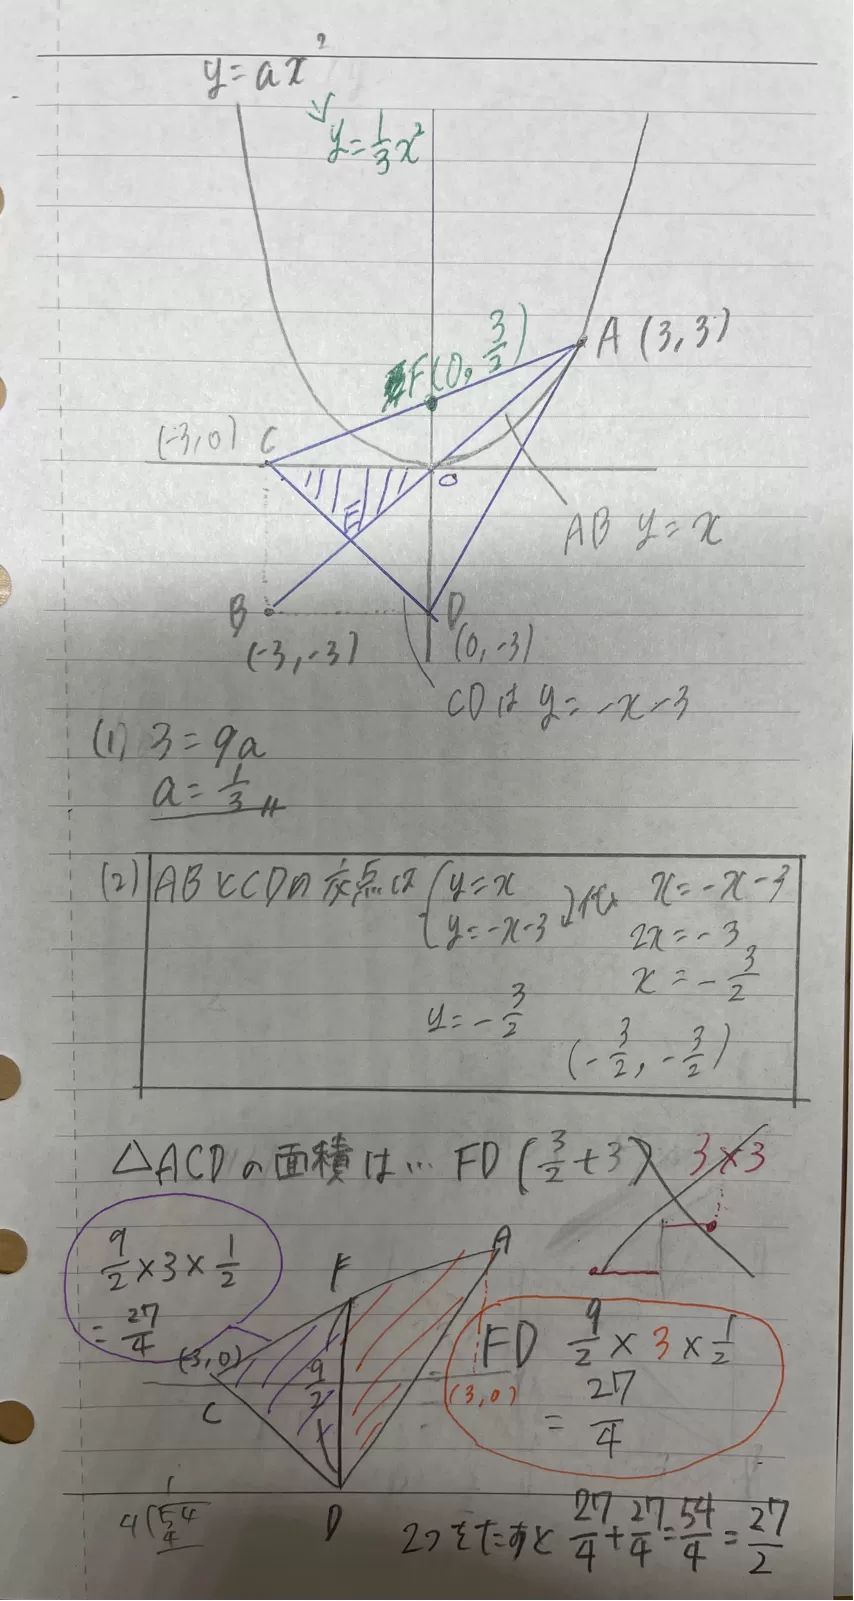 y=ax²
y=1/3x²
F(0, 3/2)
A(3,3)
(-3,0) C
O
E
AB y=x
B
D
(-3,-3)
(0,-3)
CDは y=-x-3
(1) 3=9a
a=1/3
(2) ABとCDの交点は y=x x=-x-3
y=-x-3 代入 2x=-3
x=-3/2
y=-3/2
(-3/2, -3/2)
△ACDの面積は… FD(3/2+3) 3×3
9/2×3×1/2
=27/4
F
A
(-3,0)
C
9/2
D
FD 9/2×3×1/2
=27/4
(3,0)
1
4
54
4
2つをたすと 27/4+27/4=54/4=27/2